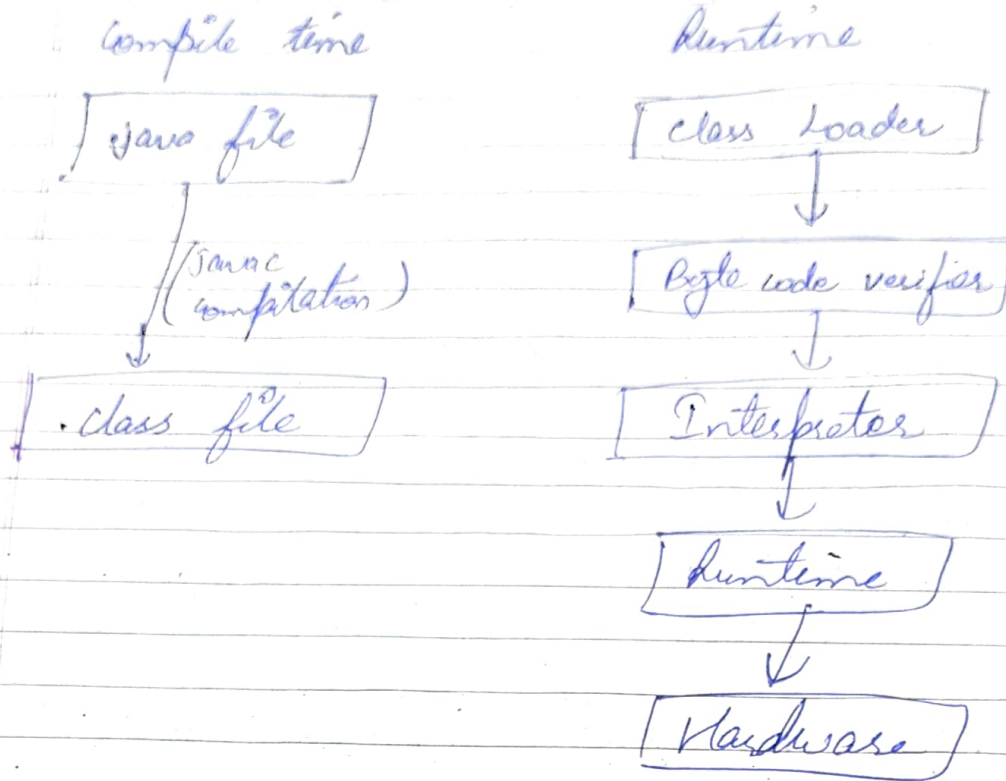 Compile time
.java file
(javac
compilation)
.class file
Runtime
Class Loader
Byte code verifier
Interpreter
Runtime
Hardware